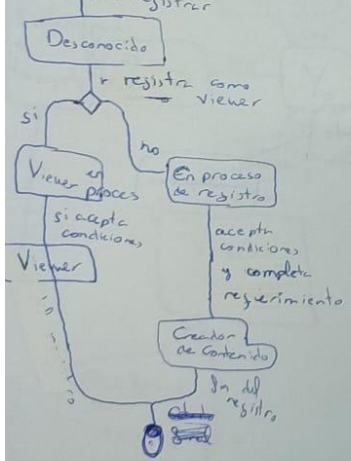 registrar
Desconocido
registra como
viewer
si
no
Viewer en
proces
En proceso
de registro
si acepta
condiciones
acepta
condiciones
y completa
requerimiento
Viewer
Creador
de Contenido
fin del
registro